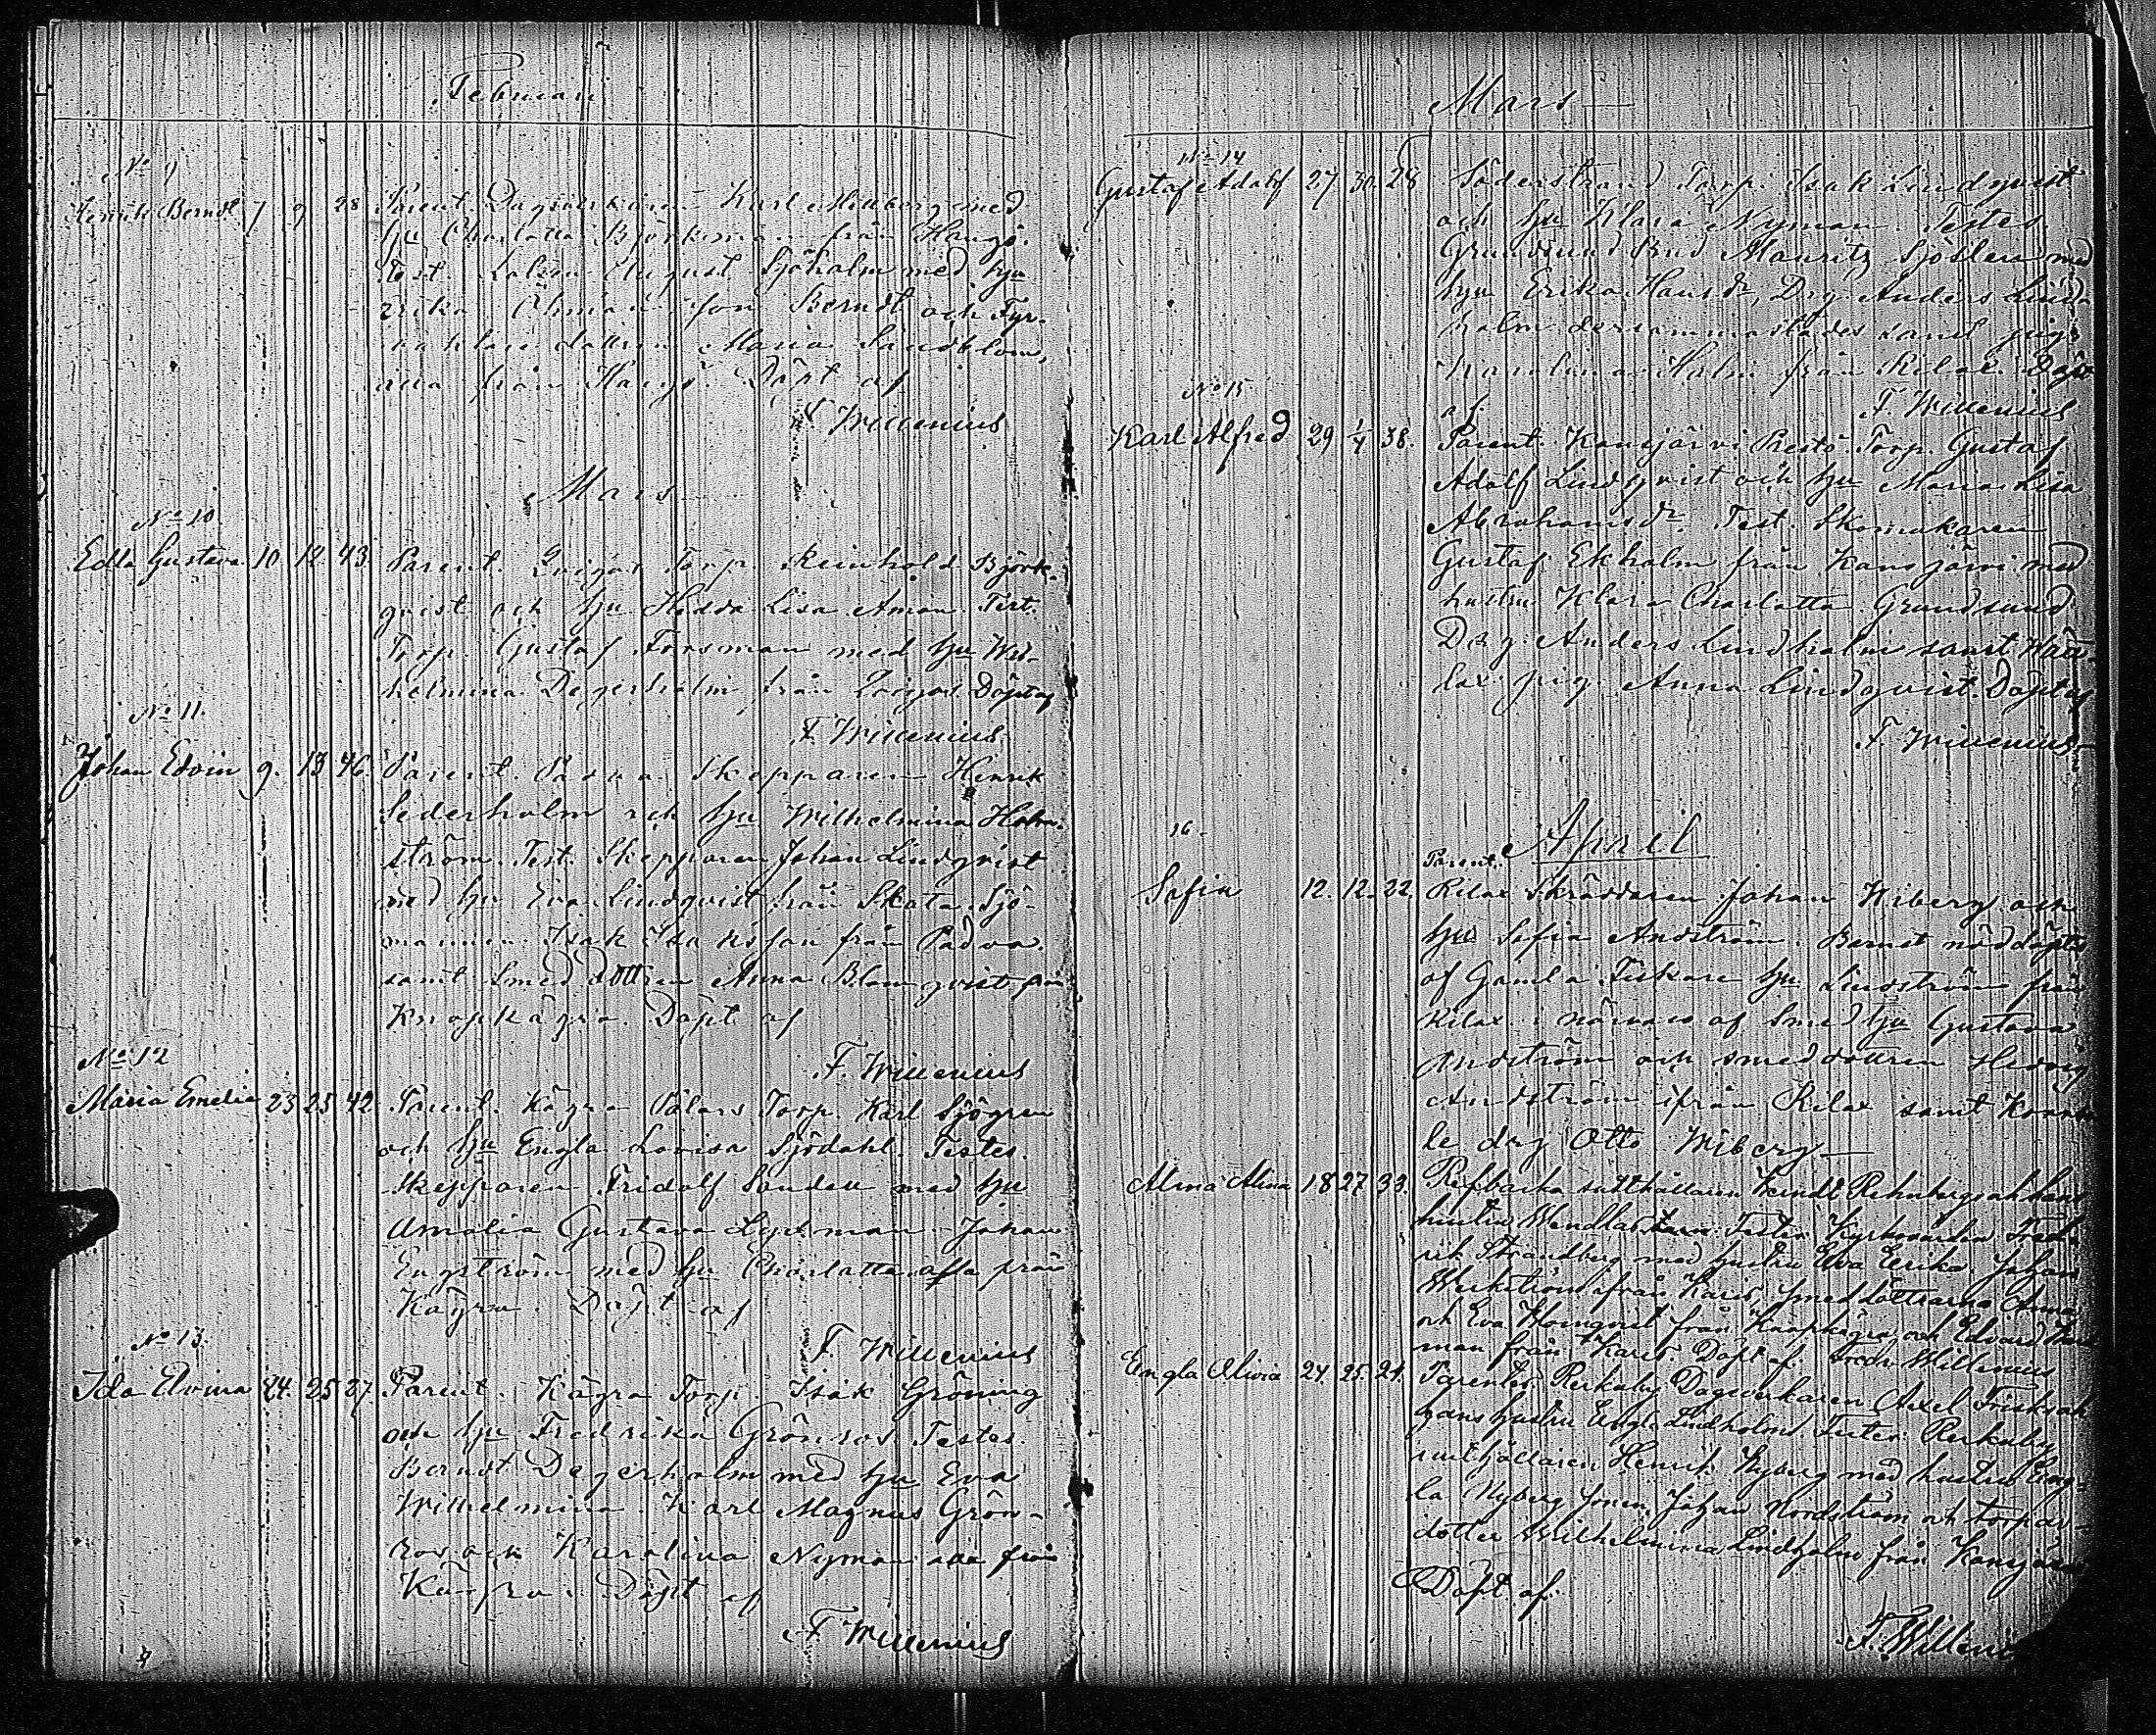 Februari
No 9
Henrik Berndt 7 9 28 Parent. Dagsverkaren Karl med
hu Charlotta Björkman från Hangö.
Test. Lotsen August Sjöholm med hu
Öhman son Berndt och Fyr-
dottren Maria Sandblom,
från Hangö. Döpt af
F. Willenius
Mars
No 10
Edla Gustava 10 12 43 Parent. Torp. Reinhold Björk-
qvist och hu Hedda Lisa Aman Test.
Torp. Gustaf Forsman med hu Wil-
helmina Degerholm från Döpt af
F. Willenius
No 11.
Johan Edvin 9. 13 46. Parent. Padva Skepparen Henrik
Sederholm och hu Wilhelmina Holm-
ström. Test. Skepparen Johan Lindqvist
med hu Eva Lindqvist från Skata. Sjö-
mannen Isak Isaksson från Padva
samt Smeddottren Anna Blomqvist från
Knopkägra. Döpt af
F. Willenius
No 12
Maria Emelie 23 25 42 Parent. Kägra Torp. Karl Sjögren
och hu Engla Lovisa Sjödahl. Testes.
Skepparen Fridolf Sanden med hu
Amalia Gustava Johan
Engström med hu Charlotta alla från
Kägra. Döpt af
F. Willenius
No 13.
Ida Elvira 24. 25 27. Parent. Kägra Torp. Isak Gröning
och hu Fredrika Grönros Testes.
Berndt Degerholm med hu Eva
Wilhelmina. Karl Magnus Grön-
ros och Karolina Nyman alla från
Kägra. Döpt af
F. Willenius
Mars
No 14
Gustaf Adolf 27 30. 28 Söderstrand Torp. Isak Lindqvist
och hu Klara Nyman. Testes.
Grundsund Bond Mauritz Sjösten med
hu Erika Hansdr, Drg. Anders Lind-
holm dersammastädes samt pig.
Karolina Holm från Rilax. Döpt
af F. Willenius
No 15
Karl Alfred 29 1/4 38. Parent. Kansjärvi Torp. Gustaf
Adolf Lindqvist och hu Maria Lisa
Abrahamsdr. Test. Skomakaren
Gustaf Ekholm från Kansjärvi med
hustru Klara Charlotta. Grundsund
Drg. Anders Lindholm samt
lax pig. Anna Lindqvist. Döpt af
F. Willenius
April
16.
Parent.
Sofia 12. 12. 22. Rilax Skräddaren Johan Wiberg och
hu Sofia Andström. Barnet nöddöptes
af Gamla Fiskare hu Lindström från
Rilax i närvaro af Smed hu Gustava
Andström och smeddottren Hedvig
Andström ifrån Rilax samt
le drg Otto Wiberg
Alma Alina 18 27 33. och hans
hustru Wendla Testes Kyrkovärden Fred-
rik Strandberg med hustru Eva Erika. Johan
från Karis. Smeddöttrarna Anna
och Eva från Knopkägra, och Edvard
man från Karis. Döpt af. Fredr Willenius
Engla Olivia 24 25. 24. Parentes Rerkaby Dagsverkaren Axel Frisk och
hans hustru Engla Lindholm. Testes: Rerkaby
Henrik Nyberg med hustru Eng-
la Nyberg Johan Nordström och torpar-
dotter Wilhelmina Lindholm från
Döpt af.
F. Willeni